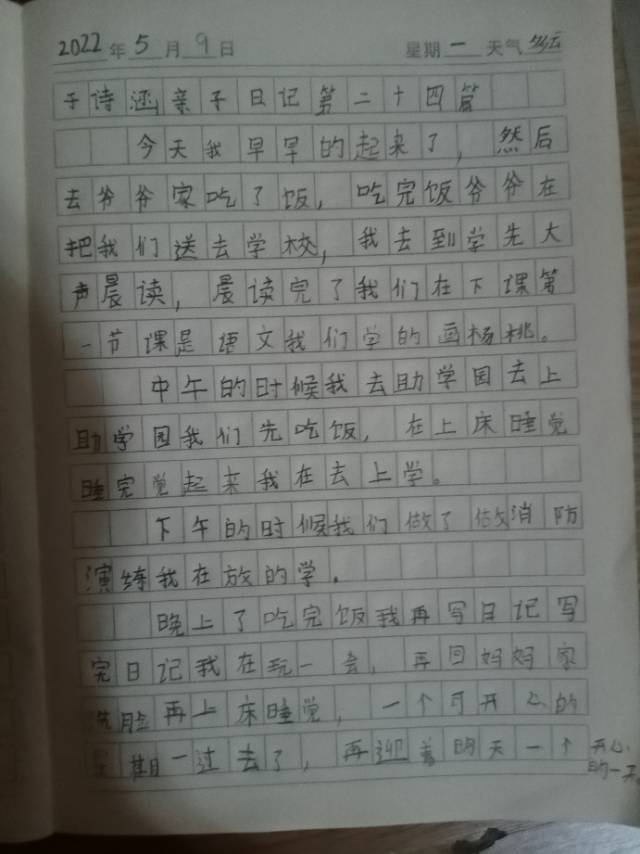 2022年5月9日 星期一 天气多云
于诗涵亲子日记第二十四篇
今天我早早的起来了，然后
去爷爷家吃了饭，吃完饭爷爷在
把我们送去学校，我去到学先大
声晨读，晨读完了我们在下课第
一节课是语文我们学的画杨桃。
中午的时候我去助学园去上
助学园我们先吃饭，在上床睡觉
睡完觉起来我在去上学。
下午的时候我们做了做消防
演练我在放的学.
晚上了吃完饭我再写日记写
完日记我在玩一会，再回妈妈家
洗脸再上床睡觉，一个可开心的
星期一过去了，再迎着明天一个开心
的一天